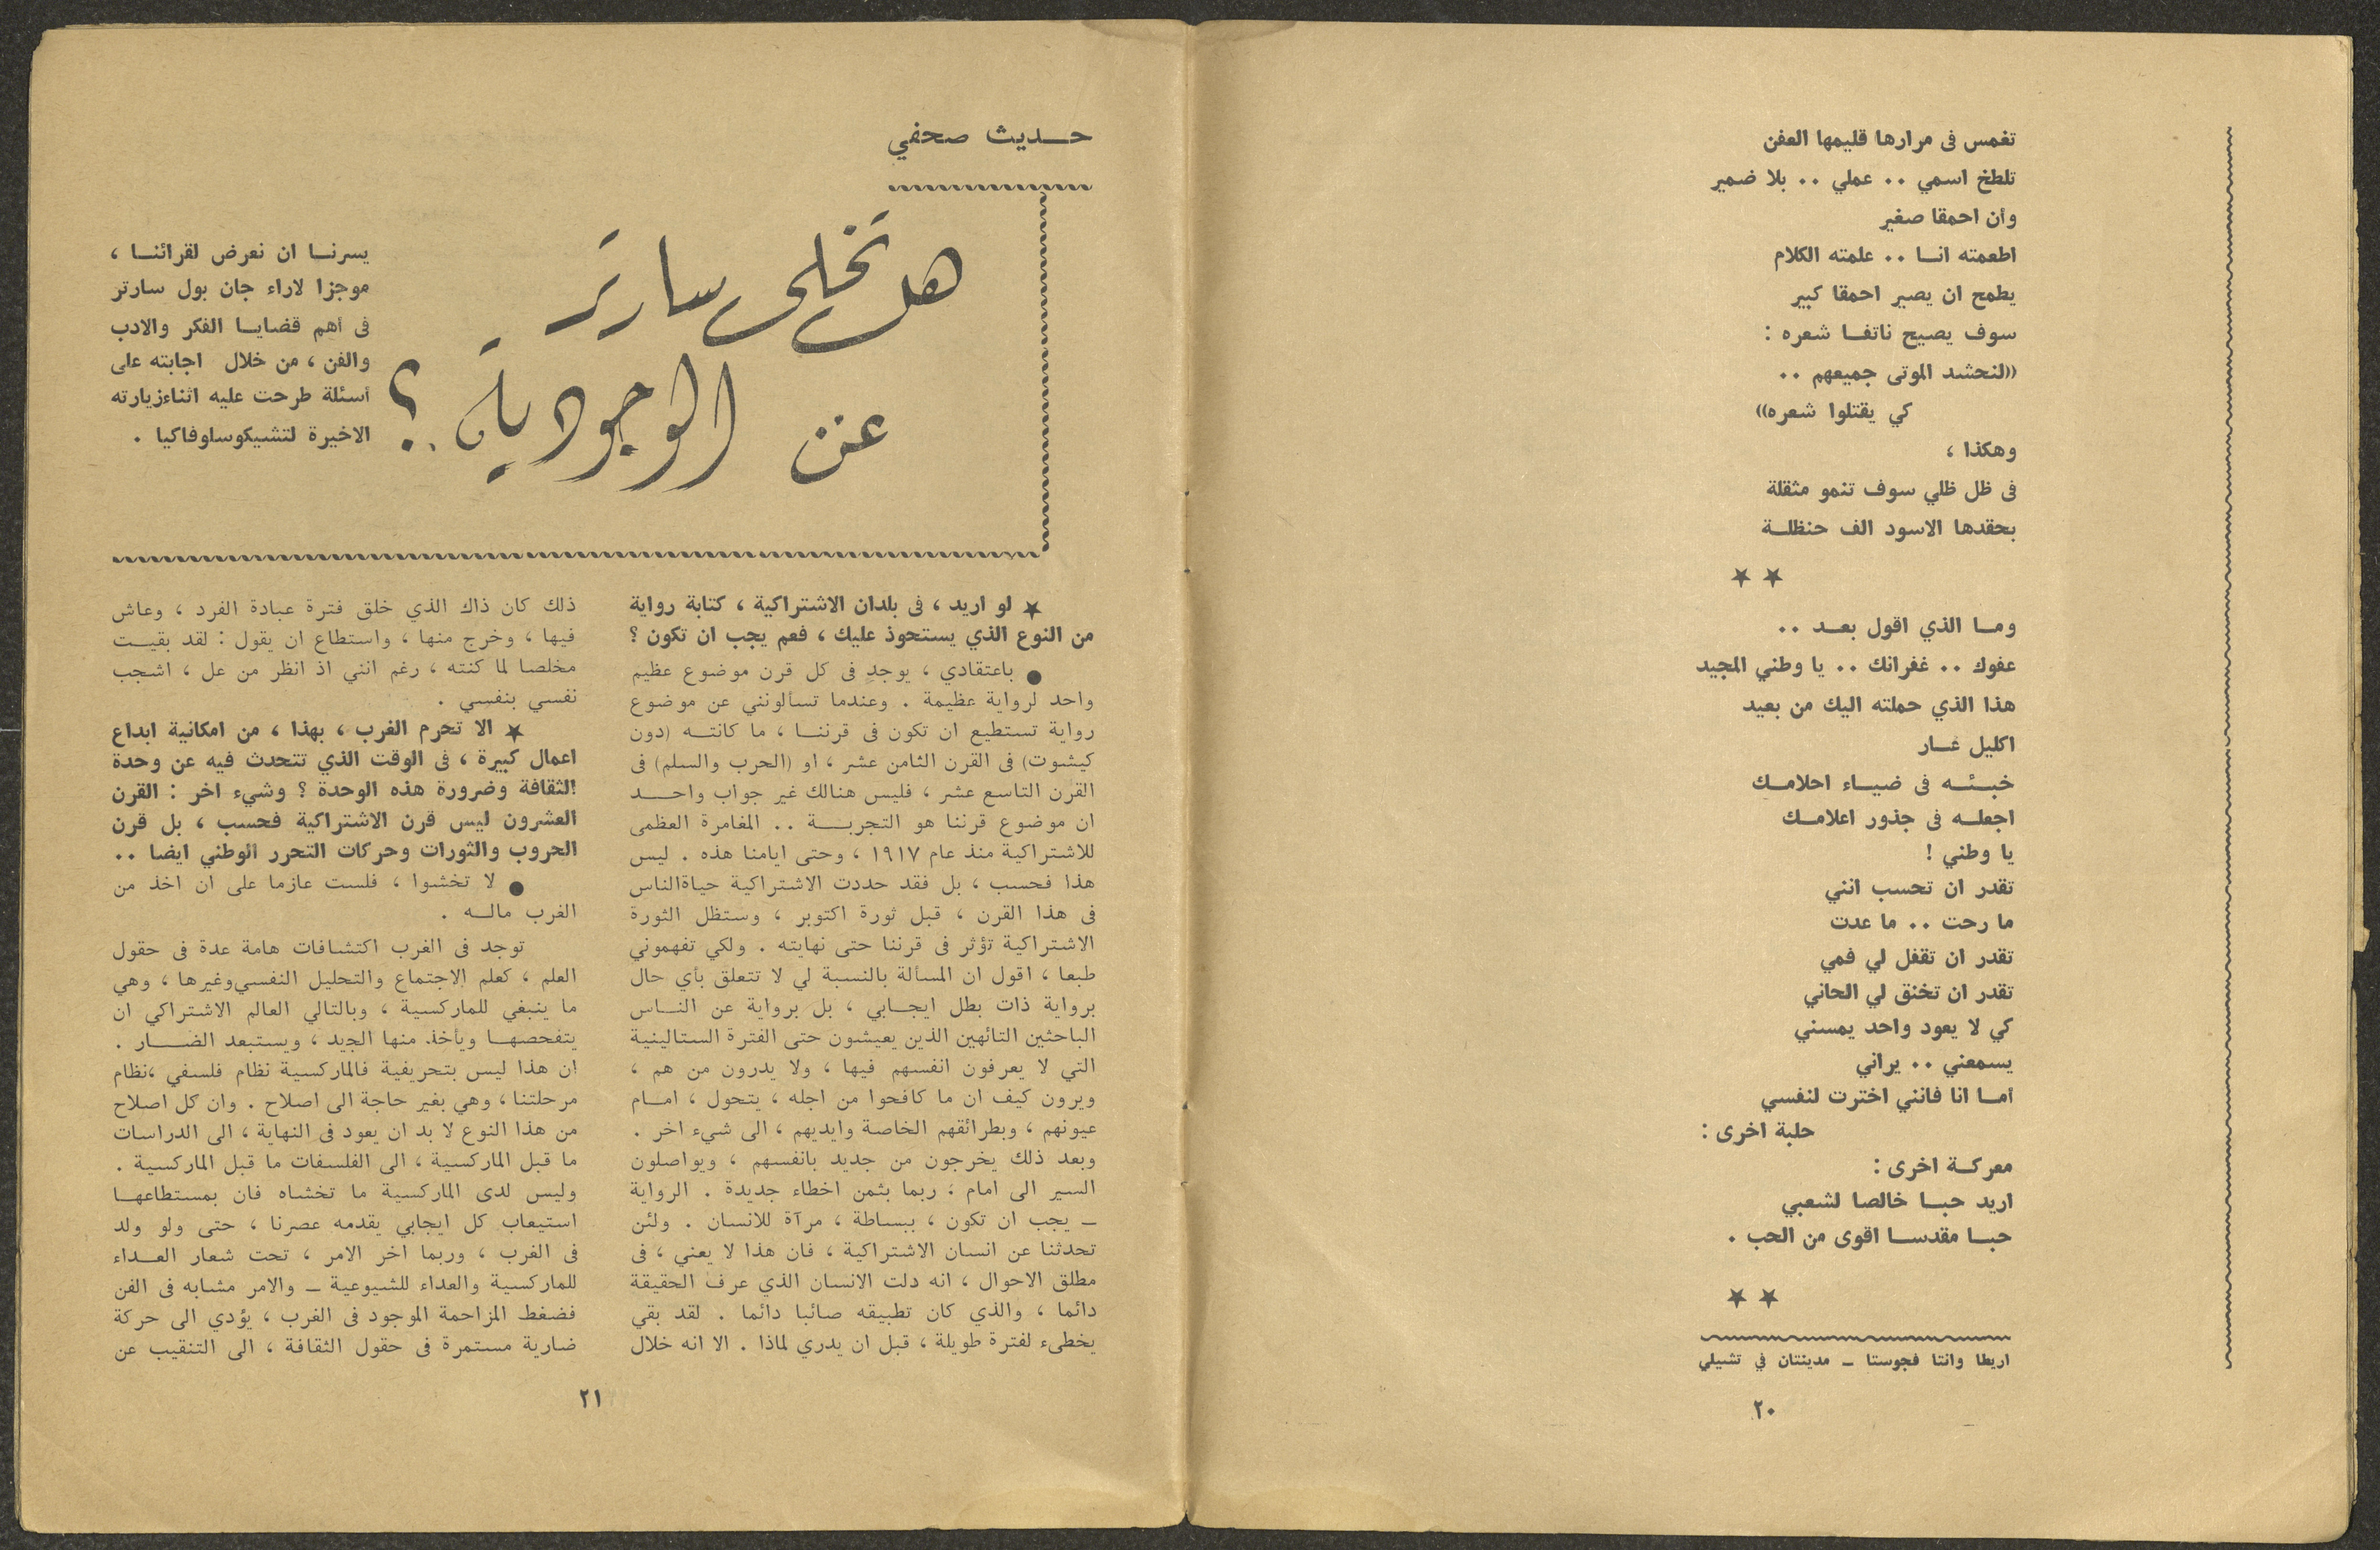 تغمس فى مرارها قليمها العفن
تلطخ اسمي .. عملي .. بلا ضمير
وأن احمقا صغير
اطعمته انا .. علمته الكلام
يطمح ان يصير احمقا كبير
سوف يصيح ناتفا شعره :
((لنحشد الموتى جميعهم ..
كي يقتلوا شعره))
وهكذا ،
فى ظل ظلي سوف تنمو مثقلة
بحقدها الاسود الف حنظلة
★ ★
وما الذي اقول بعد ..
عفوك .. غفرانك .. يا وطني المجيد
هذا الذي حملته اليك من بعيد
اكليل غار
خبئه فى ضياء احلامك
اجعله فى جذور اعلامك
يا وطني !
تقدر ان تحسب انني
ما رحت .. ما عدت
تقدر ان تقفل لي فمي
تقدر ان تخنق لي الحاني
كي لا يعود واحد يمسني
يسمعني .. يراني
أما انا فانني اخترت لنفسي
حلبة اخرى :
معركة اخرى :
اريد حبا خالصا لشعبي
حبا مقدسا اقوى من الحب .
★ ★
اريطا وانتا فجوستا ـ مدينتان في تشيلي
٢٠
حديث صحفي
هل تخلى سارتر
عن الوجودية ؟
يسرنا ان نعرض لقرائنا ،
موجزا لاراء جان بول سارتر
فى أهم قضايا الفكر والادب
والفن ، من خلال اجابته على
أسئلة طرحت عليه اثناءزيارته
الاخيرة لتشيكوسلوفاكيا .
★ لو اريد ، فى بلدان الاشتراكية ، كتابة رواية
من النوع الذي يستحوذ عليك ، فعم يجب ان تكون ؟
● باعتقادي ، يوجد فى كل قرن موضوع عظيم
واحد لرواية عظيمة . وعندما تسألونني عن موضوع
رواية تستطيع ان تكون فى قرننا ، ما كانته (دون
كيشوت) فى القرن الثامن عشر ، او (الحرب والسلم) فى
القرن التاسع عشر ، فليس هنالك غير جواب واحد
ان موضوع قرننا هو التجربة .. المغامرة العظمى
للاشتراكية منذ عام ١٩١٧ ، وحتى ايامنا هذه . ليس
هذا فحسب ، بل فقد حددت الاشتراكية حياةالناس
فى هذا القرن ، قبل ثورة اكتوبر ، وستظل الثورة
الاشتراكية تؤثر فى قرننا حتى نهايته . ولكي تفهموني
طبعا ، اقول ان المسألة بالنسبة لي لا تتعلق بأي حال
برواية ذات بطل ايجابي ، بل برواية عن الناس
الباحثين التائهين الذين يعيشون حتى الفترة الستالينية
التي لا يعرفون انفسهم فيها ، ولا يدرون من هم ،
ويرون كيف ان ما كافحوا من اجله ، يتحول ، امام
عيونهم ، وبطرائقهم الخاصة وايديهم ، الى شيء اخر .
وبعد ذلك يخرجون من جديد بانفسهم ، ويواصلون
السير الى امام ، ربما بثمن اخطاء جديدة . الرواية
ـ يجب ان تكون ، ببساطة ، مرآة للانسان . ولئن
تحدثنا عن انسان الاشتراكية ، فان هذا لا يعني ، فى
مطلق الاحوال ، انه دلت الانسان الذي عرف الحقيقة
دائما ، والذي كان تطبيقه صائبا دائما . لقد بقي
يخطىء لفترة طويلة ، قبل ان يدري لماذا . الا انه خلال
ذلك كان ذاك الذي خلق فترة عبادة الفرد ، وعاش
فيها ، وخرج منها ، واستطاع ان يقول : لقد بقيت
مخلصا لما كنته ، رغم انني اذ انظر من عل ، اشجب
نفسي بنفسي .
★ الا تحرم الغرب ، بهذا ، من امكانية ابداع
اعمال كبيرة ، فى الوقت الذي تتحدث فيه عن وحدة
الثقافة وضرورة هذه الوحدة ؟ وشيء اخر : القرن
العشرون ليس قرن الاشتراكية فحسب ، بل قرن
الحروب والثورات وحركات التحرر الوطني ايضا ..
● لا تخشوا ، فلست عازما على ان اخذ من
الغرب ماله .
توجد فى الغرب اكتشافات هامة عدة فى حقول
العلم ، كعلم الاجتماع والتحليل النفسيوغيرها ، وهي
ما ينبغي للماركسية ، وبالتالي العالم الاشتراكي ان
يتفحصها ويأخذ منها الجيد ، ويستبعد الضار .
ان هذا ليس بتحريفية فالماركسية نظام فلسفي ،نظام
مرحلتنا ، وهي بغير حاجة الى اصلاح . وان كل اصلاح
من هذا النوع لا بد ان يعود فى النهاية ، الى الدراسات
ما قبل الماركسية ، الى الفلسفات ما قبل الماركسية .
وليس لدى الماركسية ما تخشاه فان بمستطاعها
استيعاب كل ايجابي يقدمه عصرنا ، حتى ولو ولد
فى الغرب ، وربما اخر الامر ، تحت شعار العداء
للماركسية والعداء للشيوعية ـ والامر مشابه فى الفن
فضغط المزاحمة الموجود فى الغرب ، يؤدي الى حركة
ضارية مستمرة فى حقول الثقافة ، الى التنقيب عن
٢١